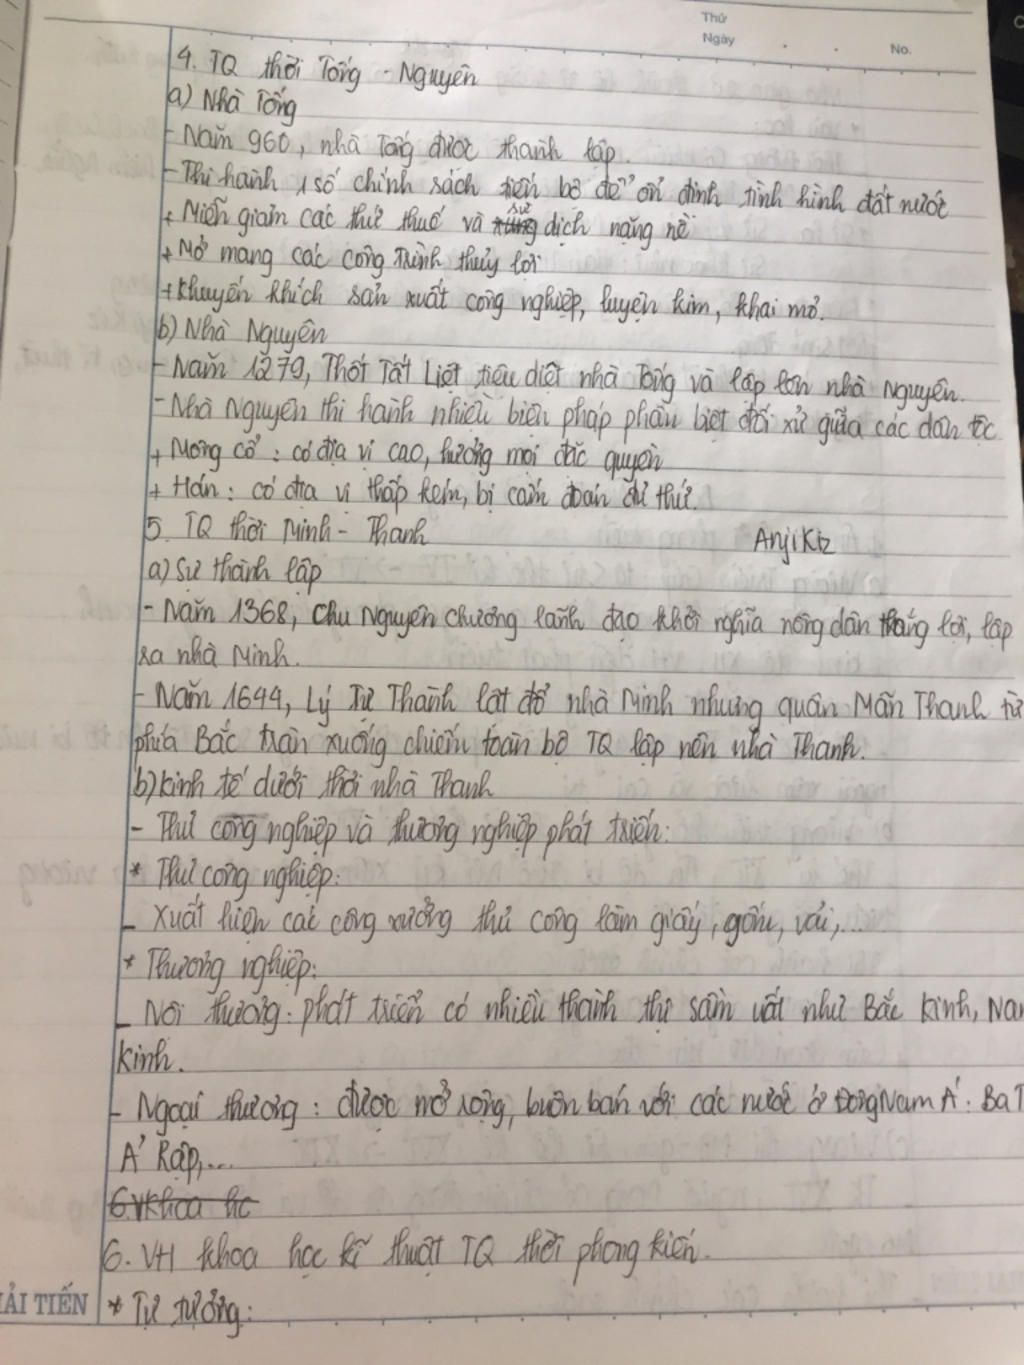 Thứ
Ngày
No.
4. TQ thời Tống - Nguyên
a) Nhà Tống
- Năm 960, nhà Tống được thành lập.
- Thi hành 1 số chính sách tiến bộ để ổn định tình hình đất nước
+ Miễn giảm các thứ thuế và sư dịch nặng nề
+ Mở mang các công trình thủy lợi
+ Khuyến khích sản xuất công nghiệp, luyện kim, khai mỏ.
b) Nhà Nguyên
- Năm 1279, Thốt Tất Liệt tiêu diệt nhà Tống và lập lên nhà Nguyên.
- Nhà Nguyên thi hành nhiều biện pháp phân biệt đối xử giữa các dân tộc
+ Mông Cổ : có địa vị cao, hưởng mọi đặc quyền
+ Hán : có địa vị thấp kém, bị cấm đoán đủ thứ.
5. TQ thời Minh - Thanh
AnjiKiz
a) Sự thành lập
- Năm 1368, Chu Nguyên Chương lãnh đạo khởi nghĩa nông dân thắng lợi, lập
ra nhà Minh.
- Năm 1644, Lý Tự Thành lật đổ nhà Minh nhưng quân Mãn Thanh từ
phía Bắc tràn xuống chiếm toàn bộ TQ lập nên nhà Thanh.
b) Kinh tế dưới thời nhà Thanh
- Thủ công nghiệp và thương nghiệp phát triển:
* Thủ công nghiệp:
- Xuất hiện các công xưởng thủ công làm giấy, gốm, vải,...
* Thương nghiệp:
- Nội thương: phát triển có nhiều thành thị sầm uất như Bắc Kinh, Na
Kinh.
- Ngoại thương : được mở rộng, buôn bán với các nước ở Đông Nam Á. Ba T
Ả Rập,...
6. VH khoa học kĩ thuật TQ thời phong kiến.
ẢI TIẾN
* Tư tưởng: